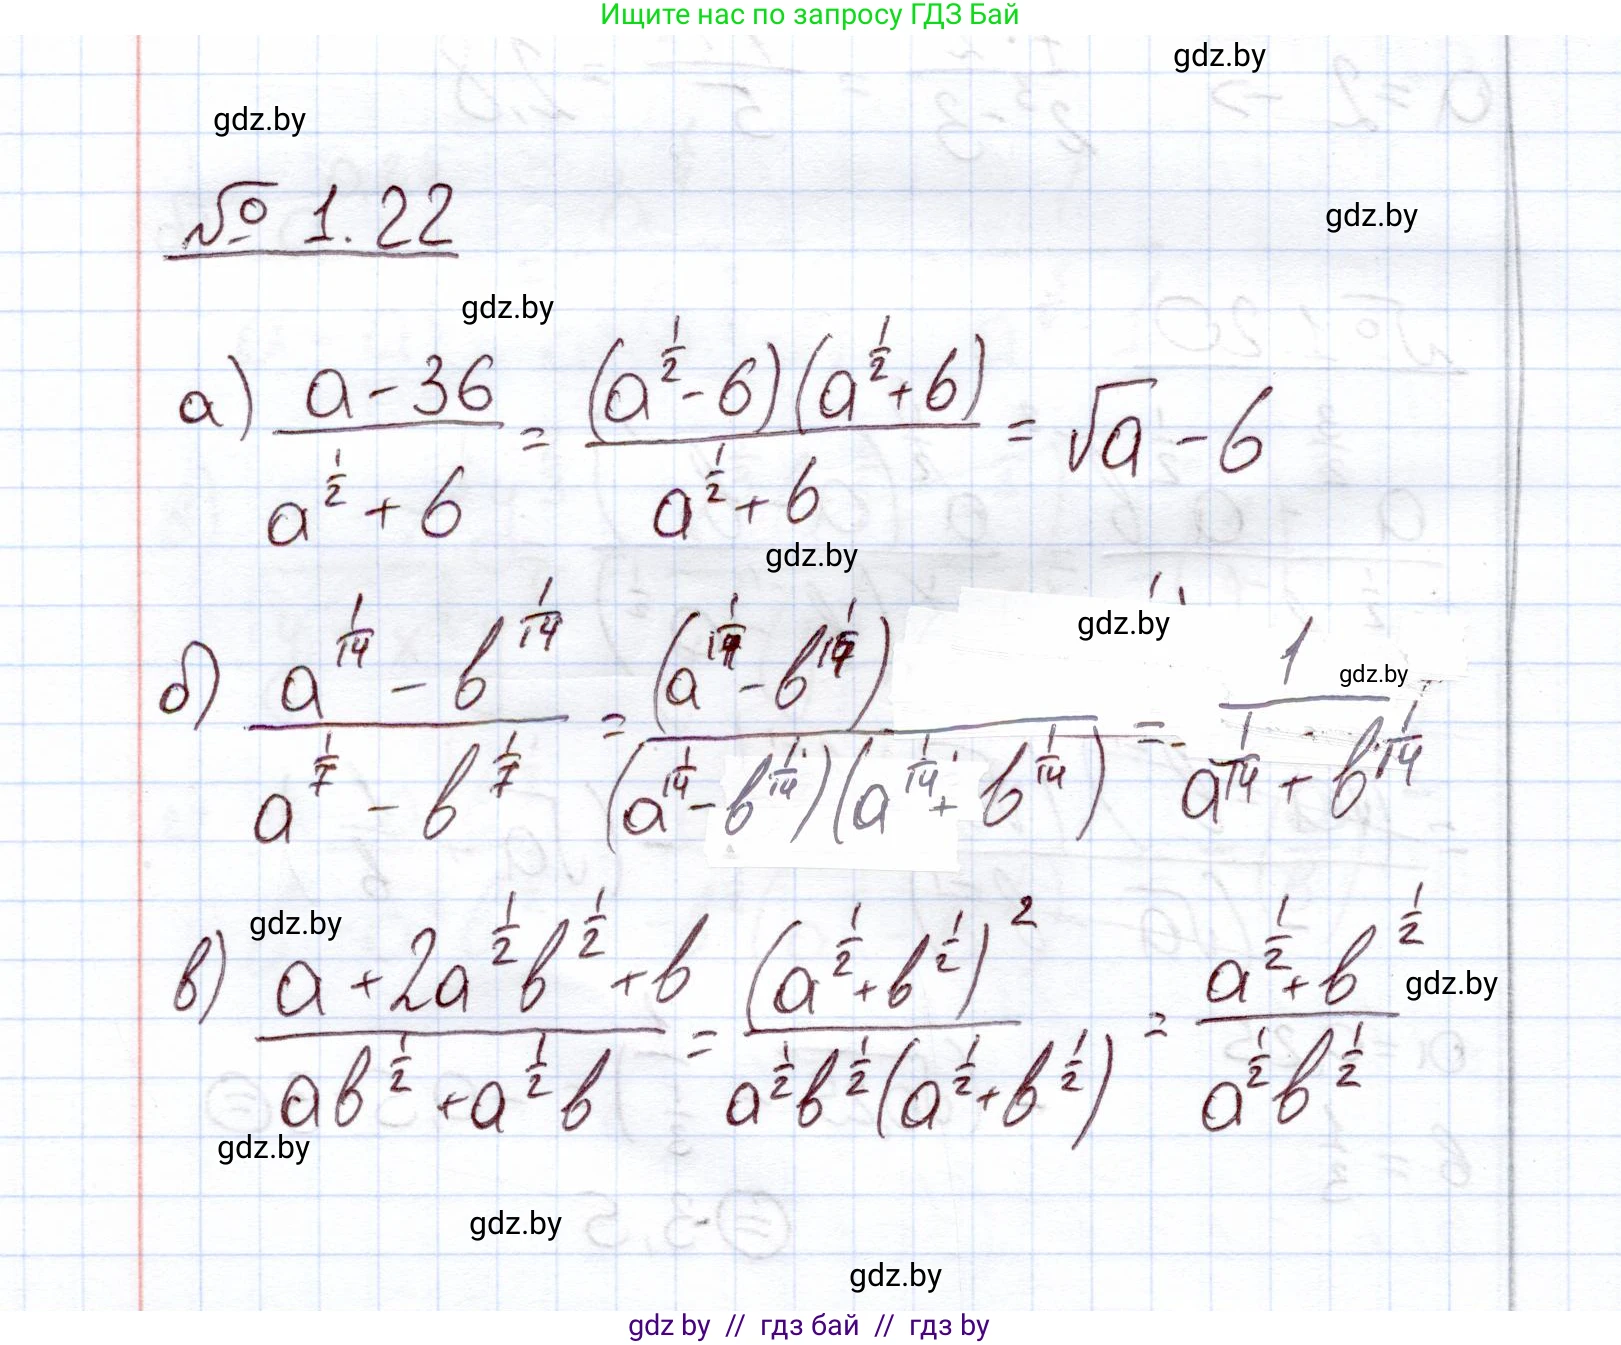 Ищите нас по запросу ГДЗ Бай
gdz.by
gdz.by
№ 1.22
gdz.by
gdz.by
а) (a - 36)/(a^(1/2) + 6) = ((a^(1/2) - 6)(a^(1/2) + 6))/(a^(1/2) + 6) = √a - 6
gdz.by
gdz.by
gdz.by
б) (a^(1/14) - b^(1/14))/(a^(1/7) - b^(1/7)) = (a^(1/14) - b^(1/14))/((a^(1/14) - b^(1/14))(a^(1/14) + b^(1/14))) = 1/(a^(1/14) + b^(1/14))
gdz.by
в) (a + 2a^(1/2)b^(1/2) + b)/(ab^(1/2) + a^(1/2)b) = (a^(1/2) + b^(1/2))^2/(a^(1/2)b^(1/2)(a^(1/2) + b^(1/2))) = (a^(1/2) + b^(1/2))/(a^(1/2)b^(1/2))
gdz.by
gdz.by
gdz.by
gdz.by
gdz by // гдз бай // гдз by